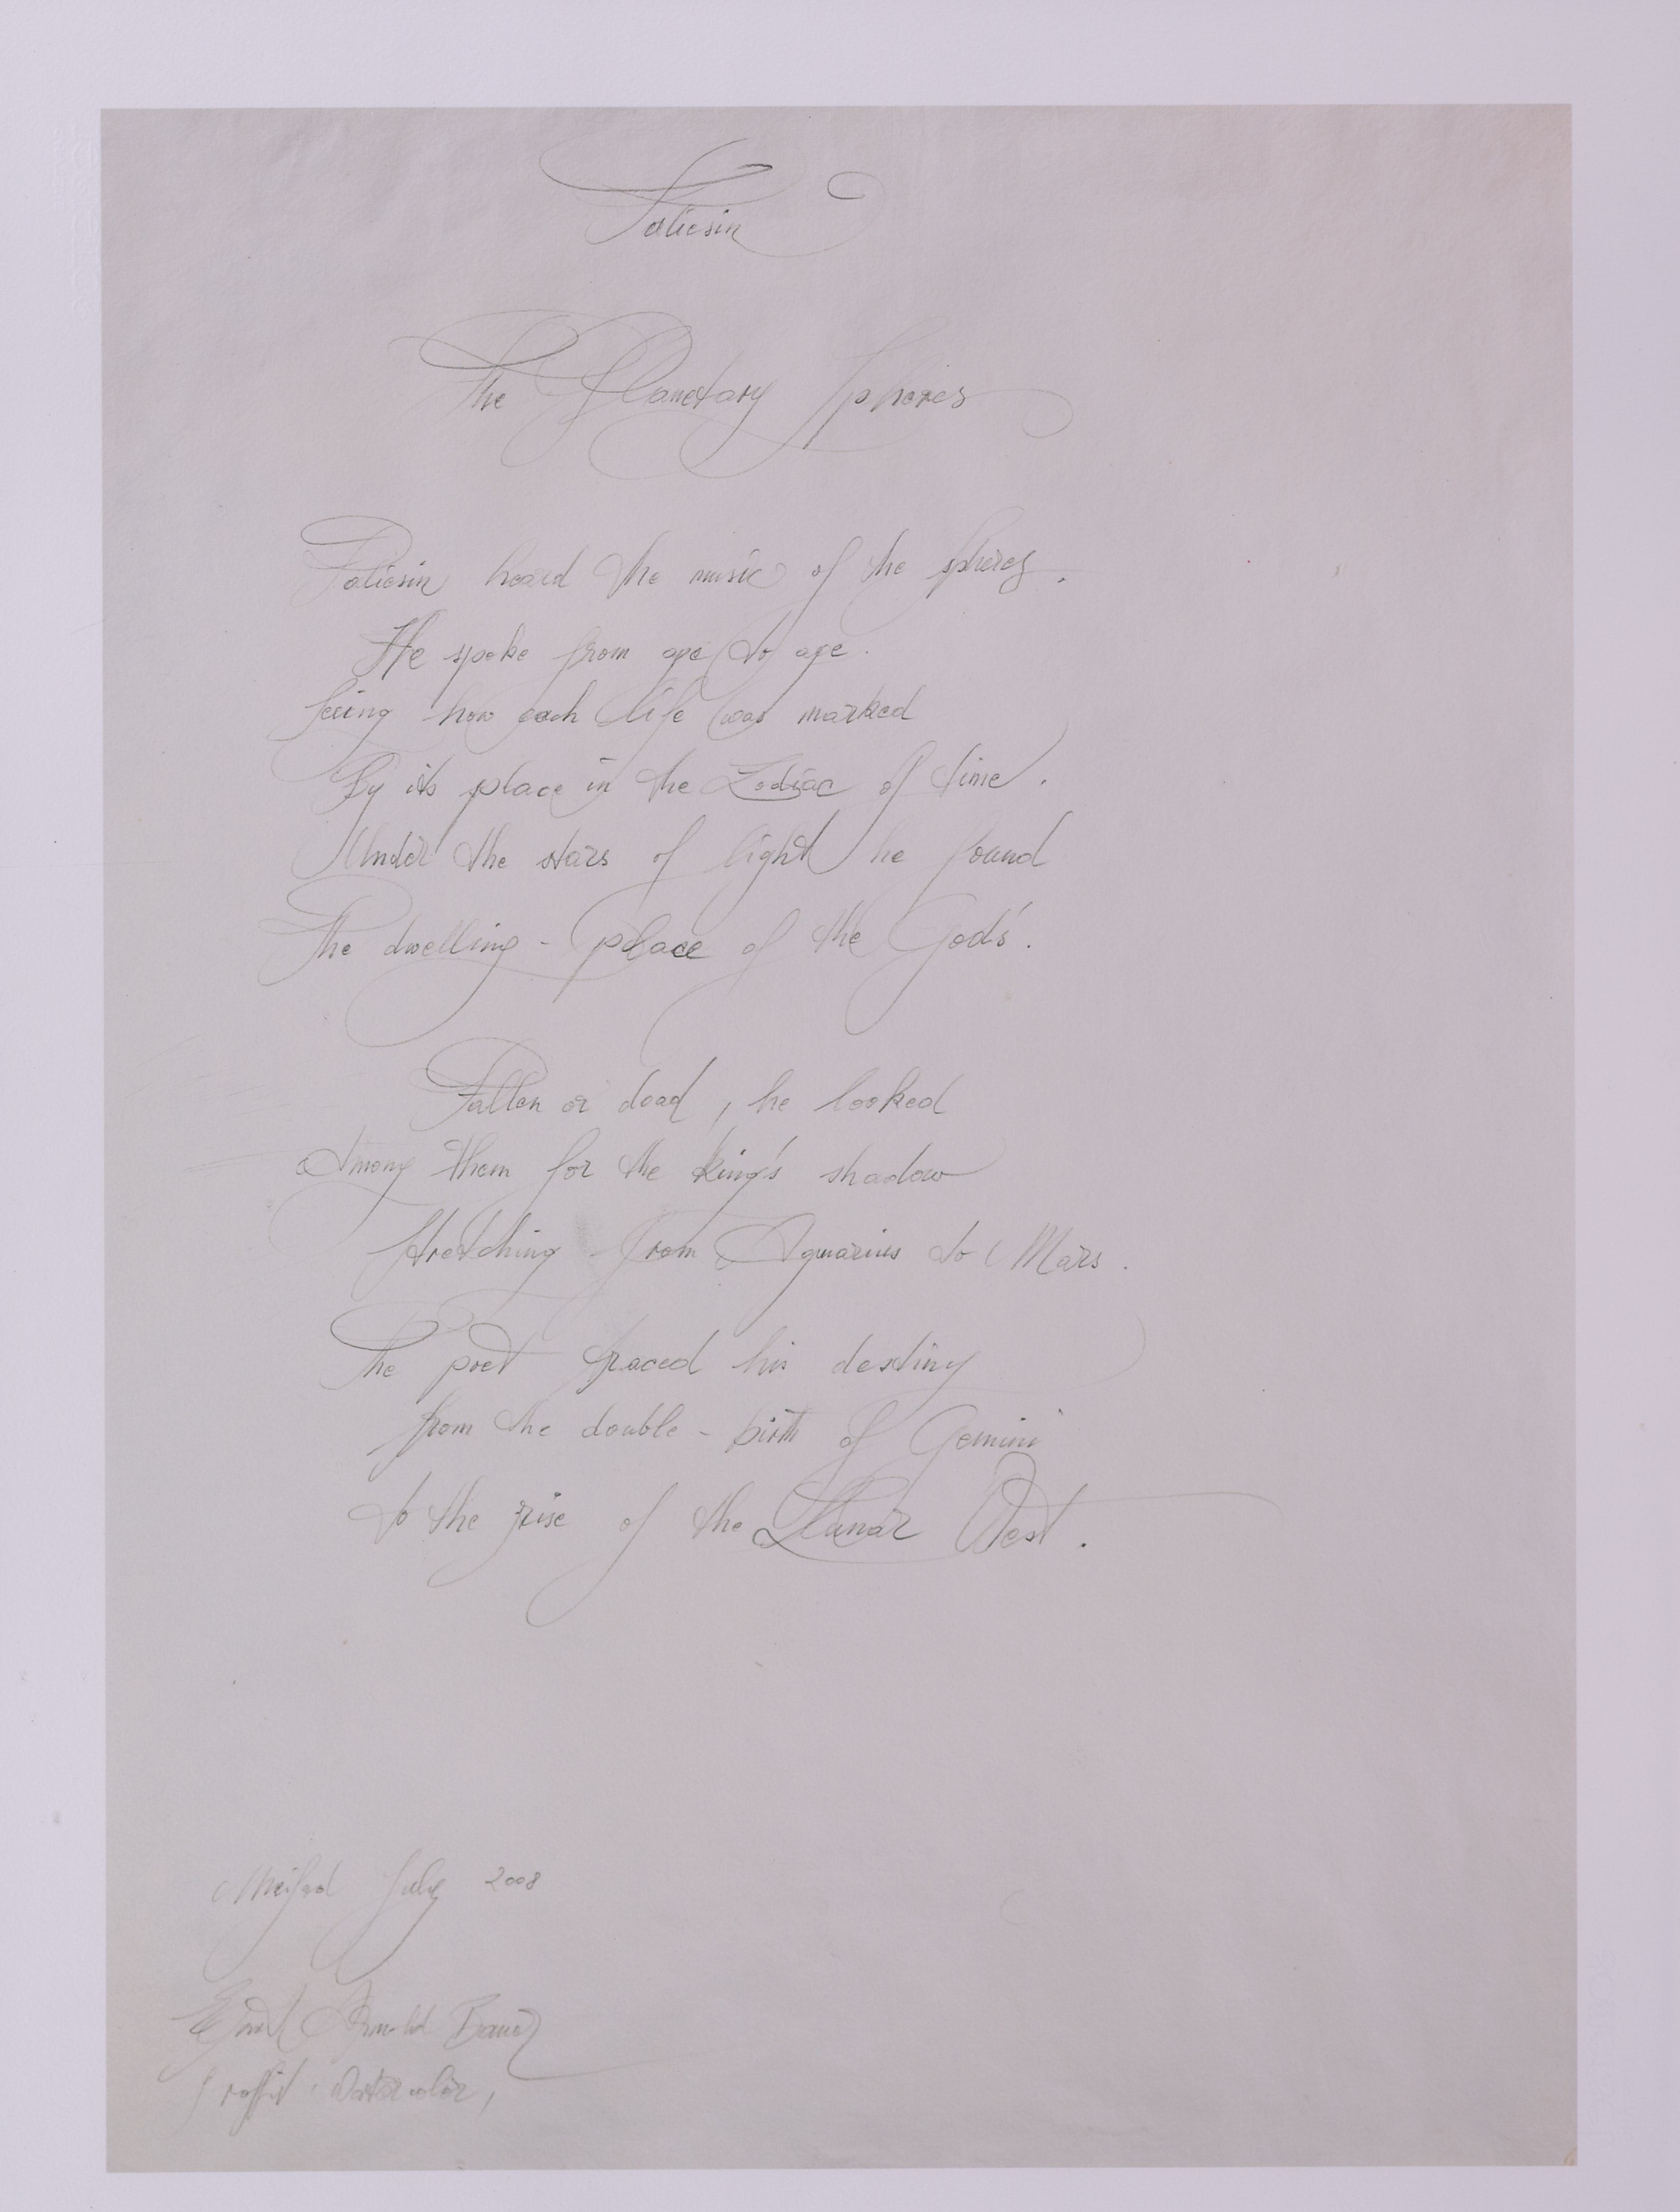 Taliesin
The Planetary Spheres
Taliesin heard the music of the spheres.
He spoke from age to age.
Seeing how each life was marked
By its place in the Zodiac of time.
Under the stars of light he found
The dwelling - place of the God's.
Fallen or dead, he looked
Among them for the king's shadow
Stretching from Aquarius to Mars.
The poet traced his destiny
from the double - birth of Gemini
to the rise of the Lunar West.
July 2008
Arnold